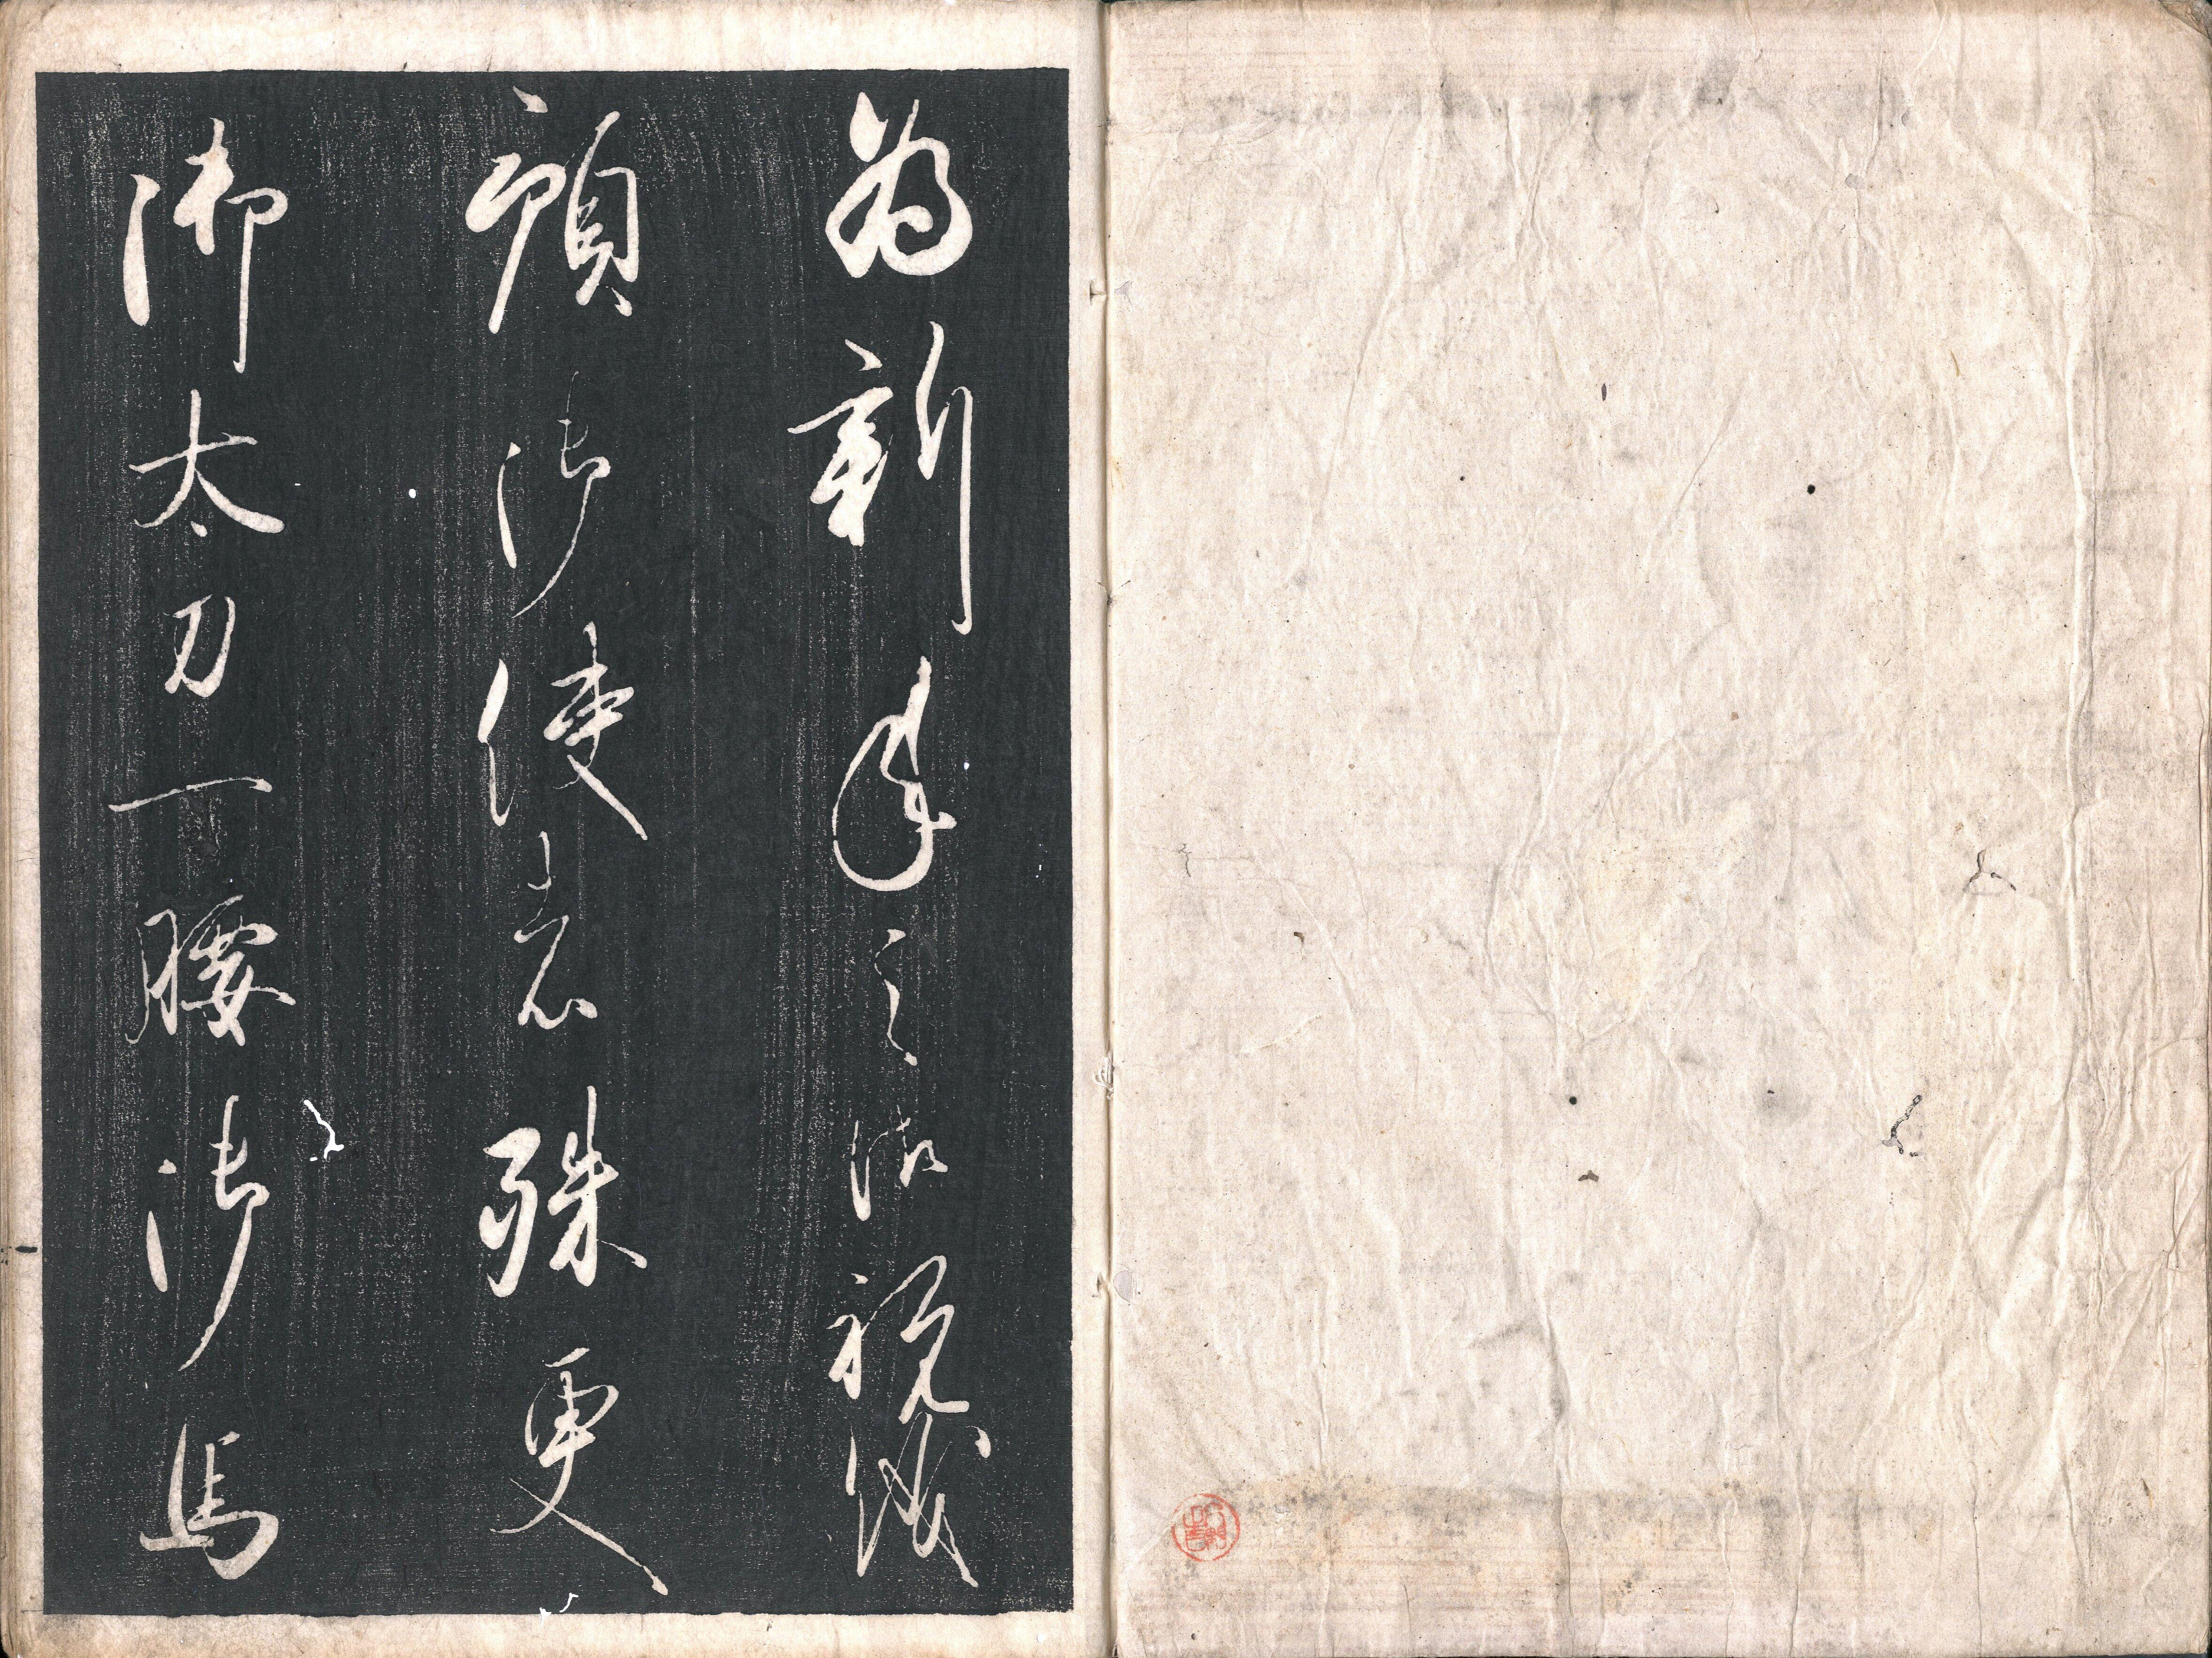 為新年之御祝儀
預御使者殊更
御太刀一腰御馬